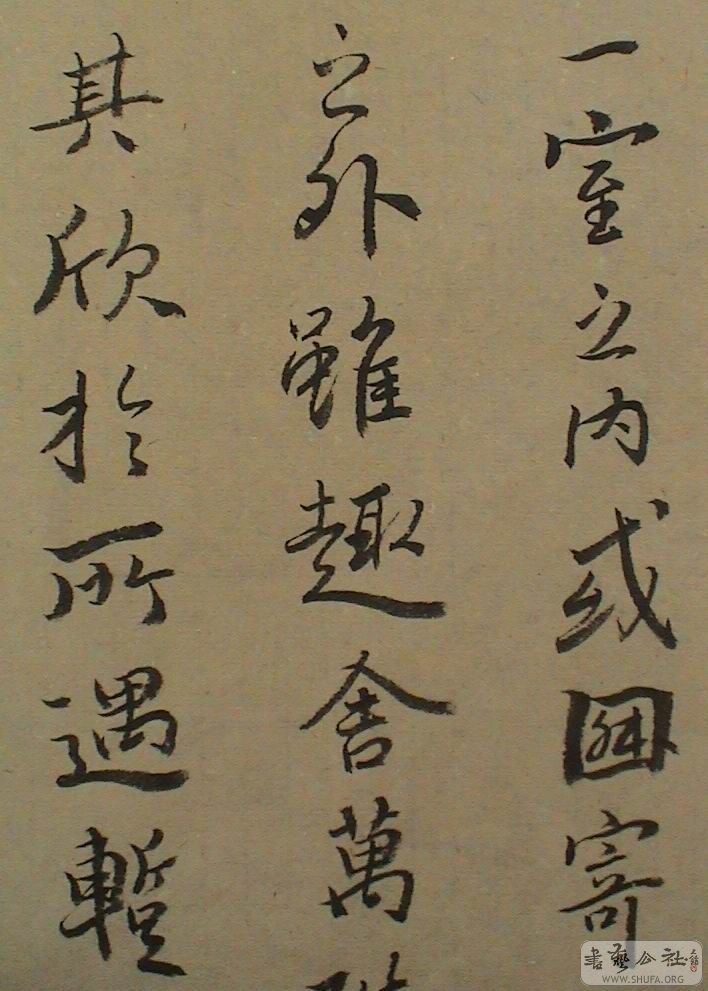 一室之內或因寄
之外雖趣舍萬
其欣於所遇暫
書藝公社
WWW.SHUFA.ORG